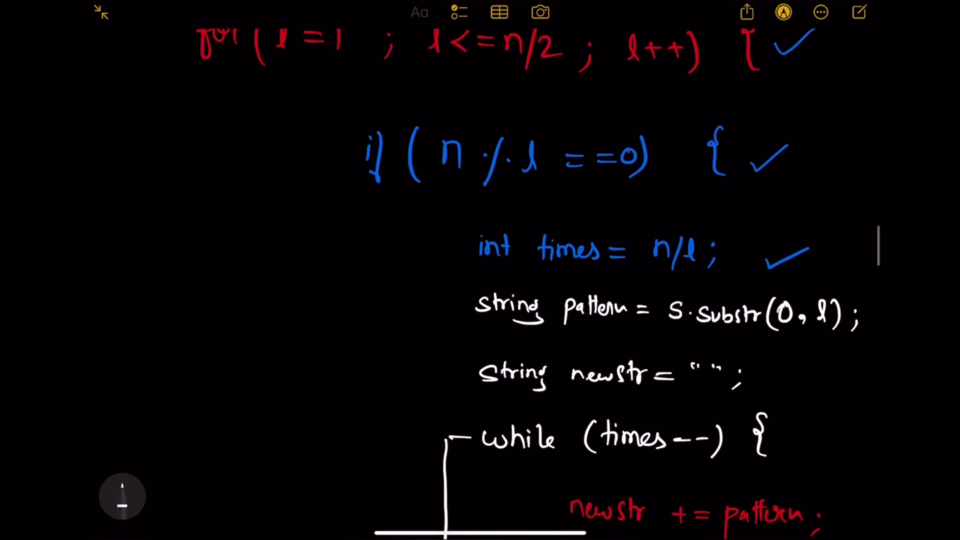 Aa
for ( l = 1 ; l <= n/2 ; l++) {
if ( n % l == 0) {
int times = n/l ;
string pattern = s.substr(0, l) ;
string newstr = " " ;
while (times--) {
newstr += pattern ;